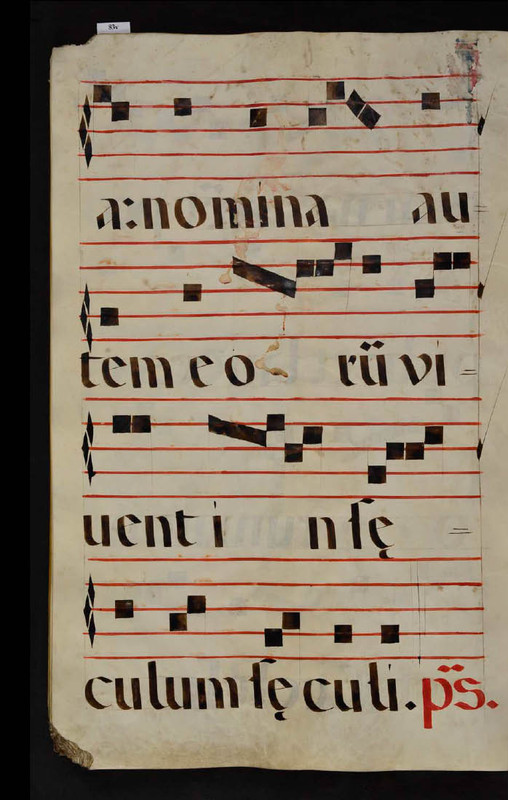 83v
a:nomina au=
tem eo rũ vi=
uent i n ſę =
culum ſę culi. p̃s.